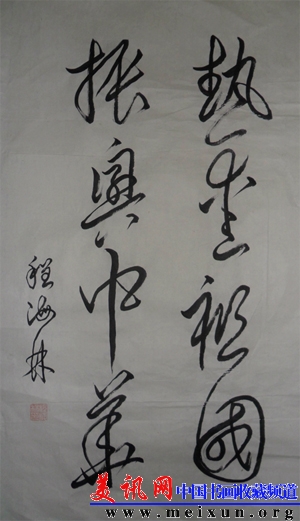 熱愛祖國
振興中華
程海林
美讯网 中国书画收藏频道
www.meixun.org